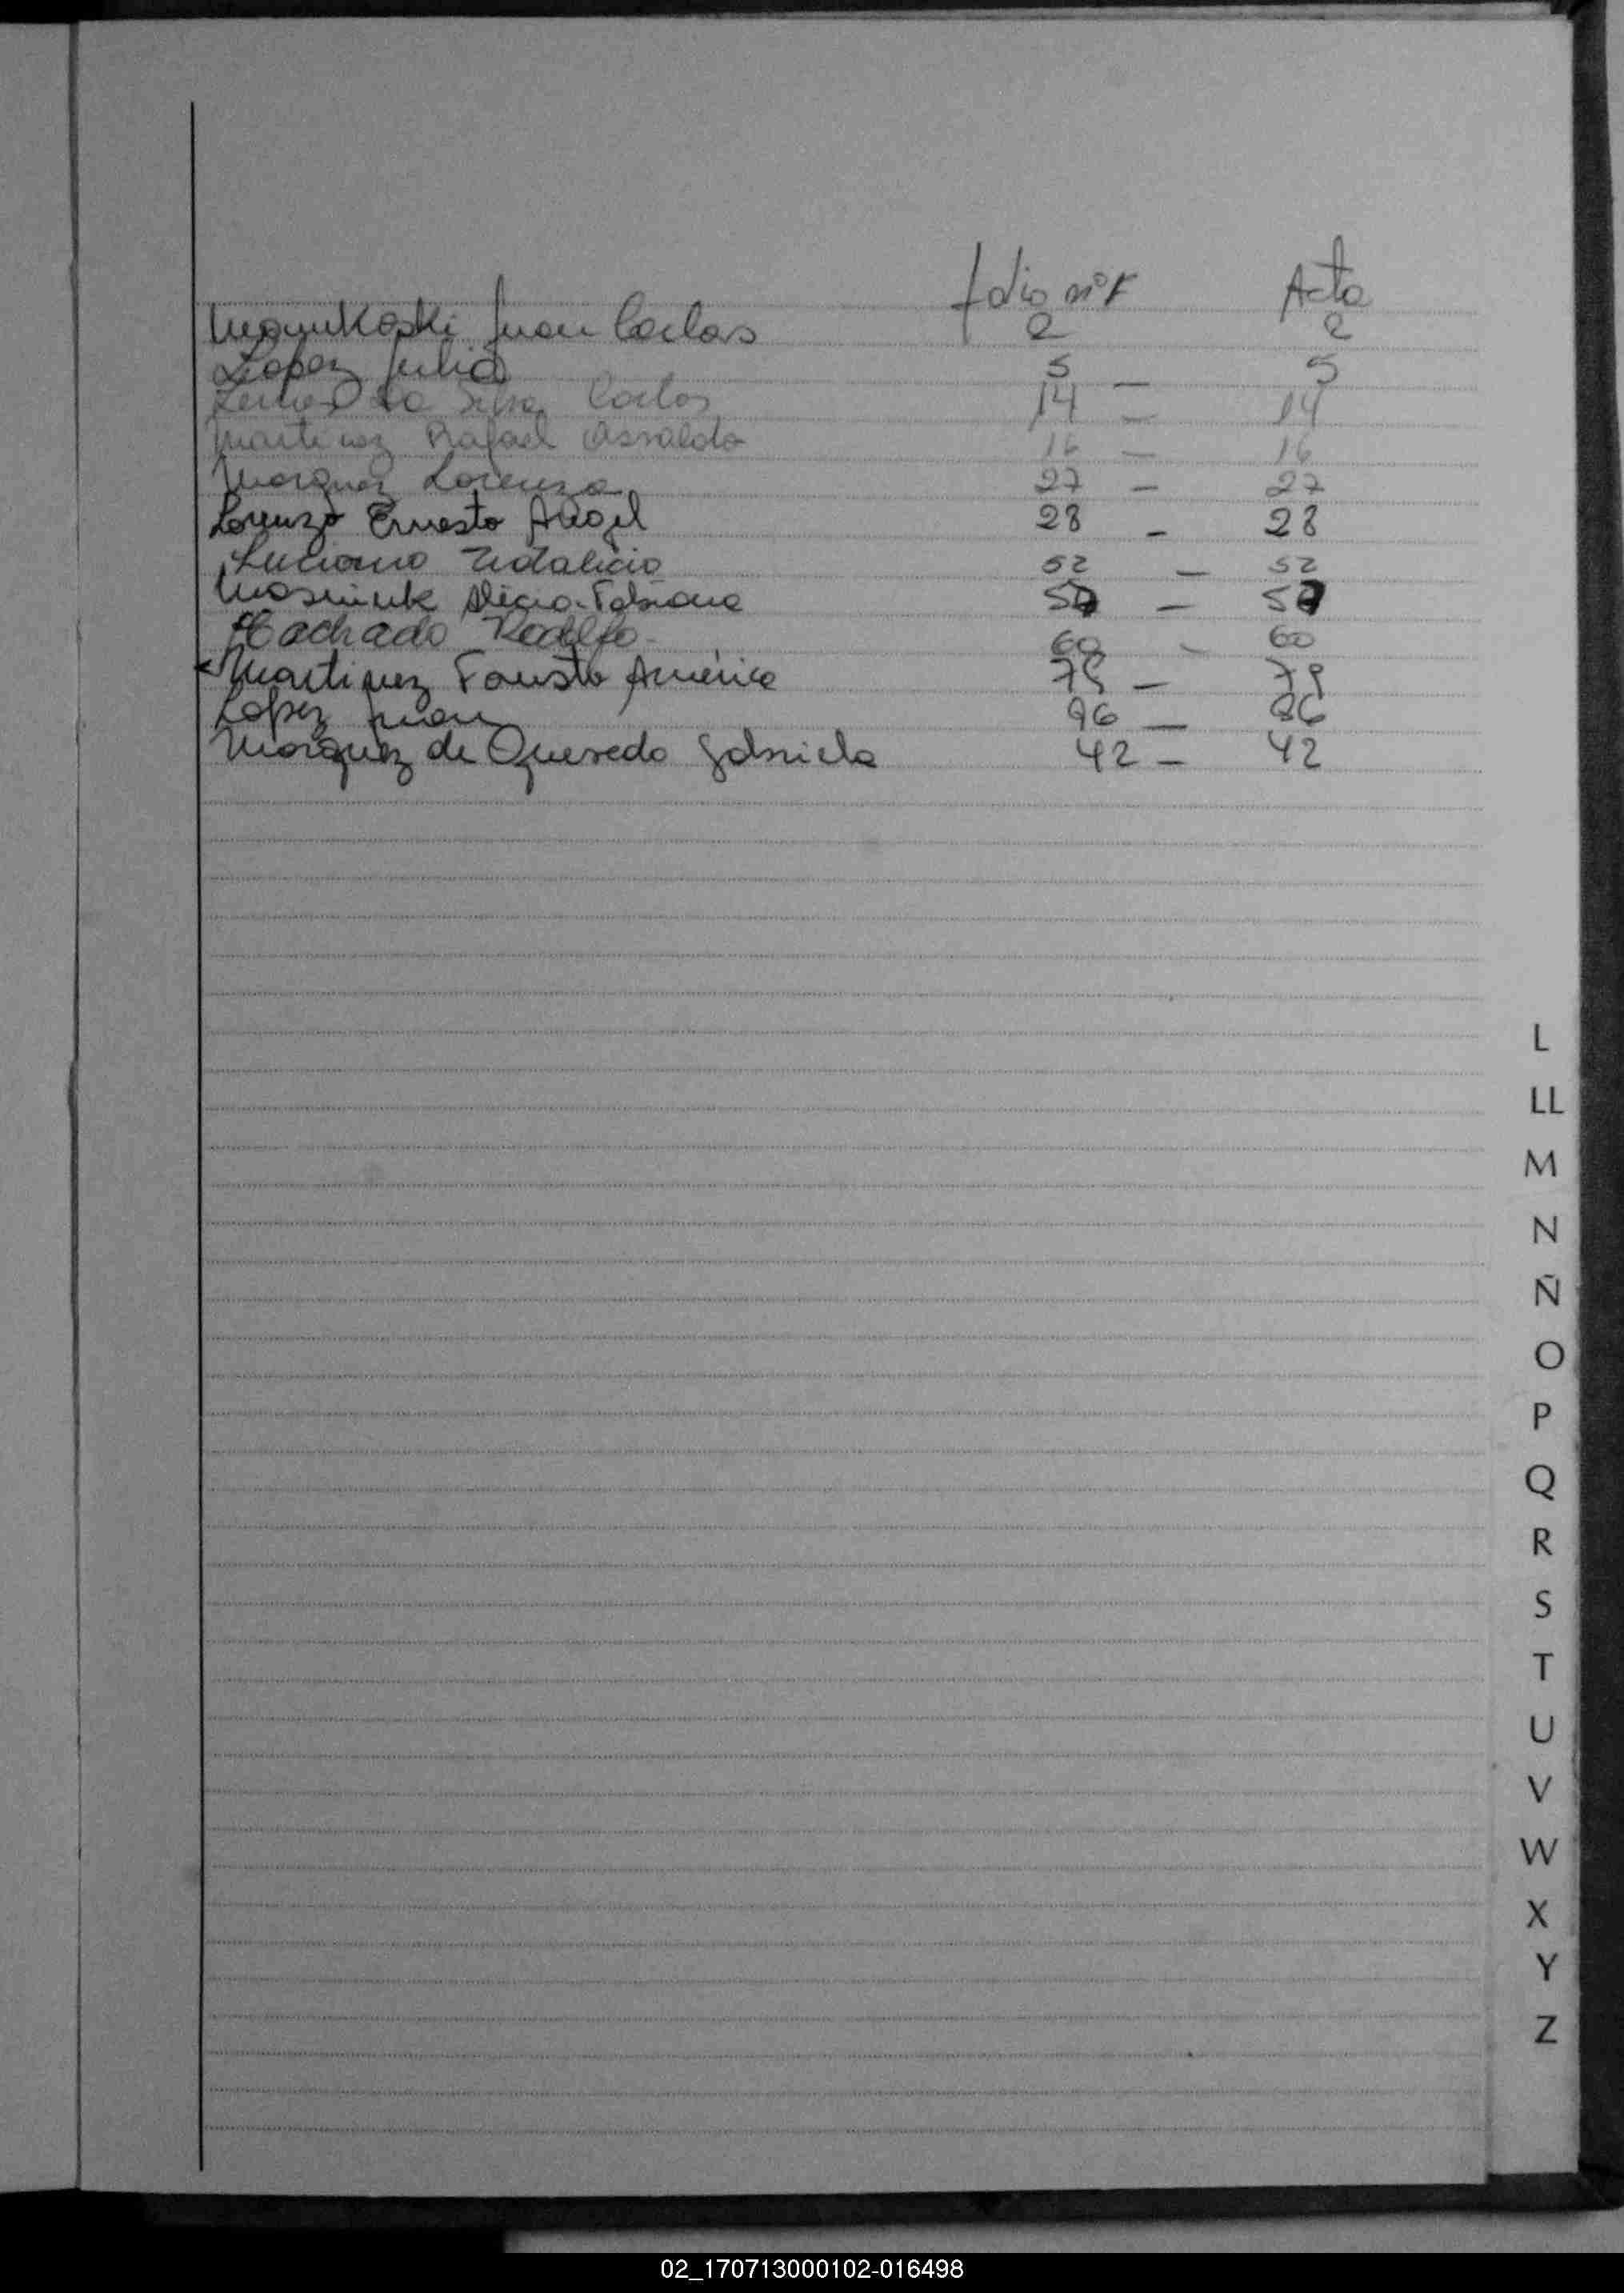 folio nº Acta
Juan Carlos 2 2
Lopez Julio 5 – 5
da Silva Carlos 14 – 14
Martinez Rafael Osvaldo 16 – 16
Marquez Lorenzo 27 – 27
Lorenzo Ernesto Angel 28 – 28
Luciano 52 – 52
Alicia Fabiana – 
Machado Rodolfo 60 – 60
Martinez Fausto Américo – 79
Lopez Juan – 
Marquez de Quevedo Gabriela 42 – 42
L
LL
M
N
Ñ
O
P
Q
R
S
T
U
V
W
X
Y
Z
02_170713000102-016498